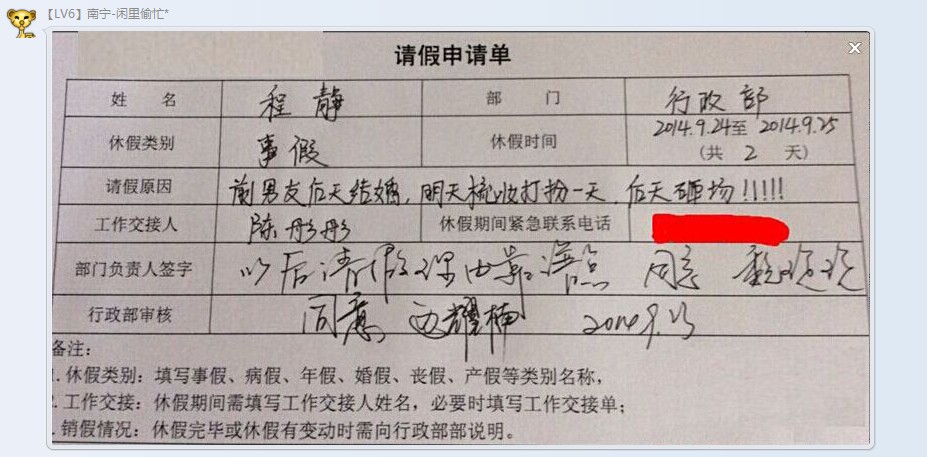 【LV6】南宁-闲里偷忙*
请假申请单
姓 名 程静 部 门 行政部
休假类别 事假 休假时间 2014.9.24至 2014.9.25
(共 2 天)
请假原因 前男友后天结婚,明天梳妆打扮一天,后天砸场!!!!!!
工作交接人 陈彤彤 休假期间紧急联系电话
部门负责人签字 以后请假理由写 同意
行政部审核 同意 耀楠 2014.9.23
备注:
1. 休假类别:填写事假、病假、年假、婚假、丧假、产假等类别名称,
2. 工作交接:休假期间需填写工作交接人姓名,必要时填写工作交接单;
. 销假情况:休假完毕或休假有变动时需向行政部部说明。